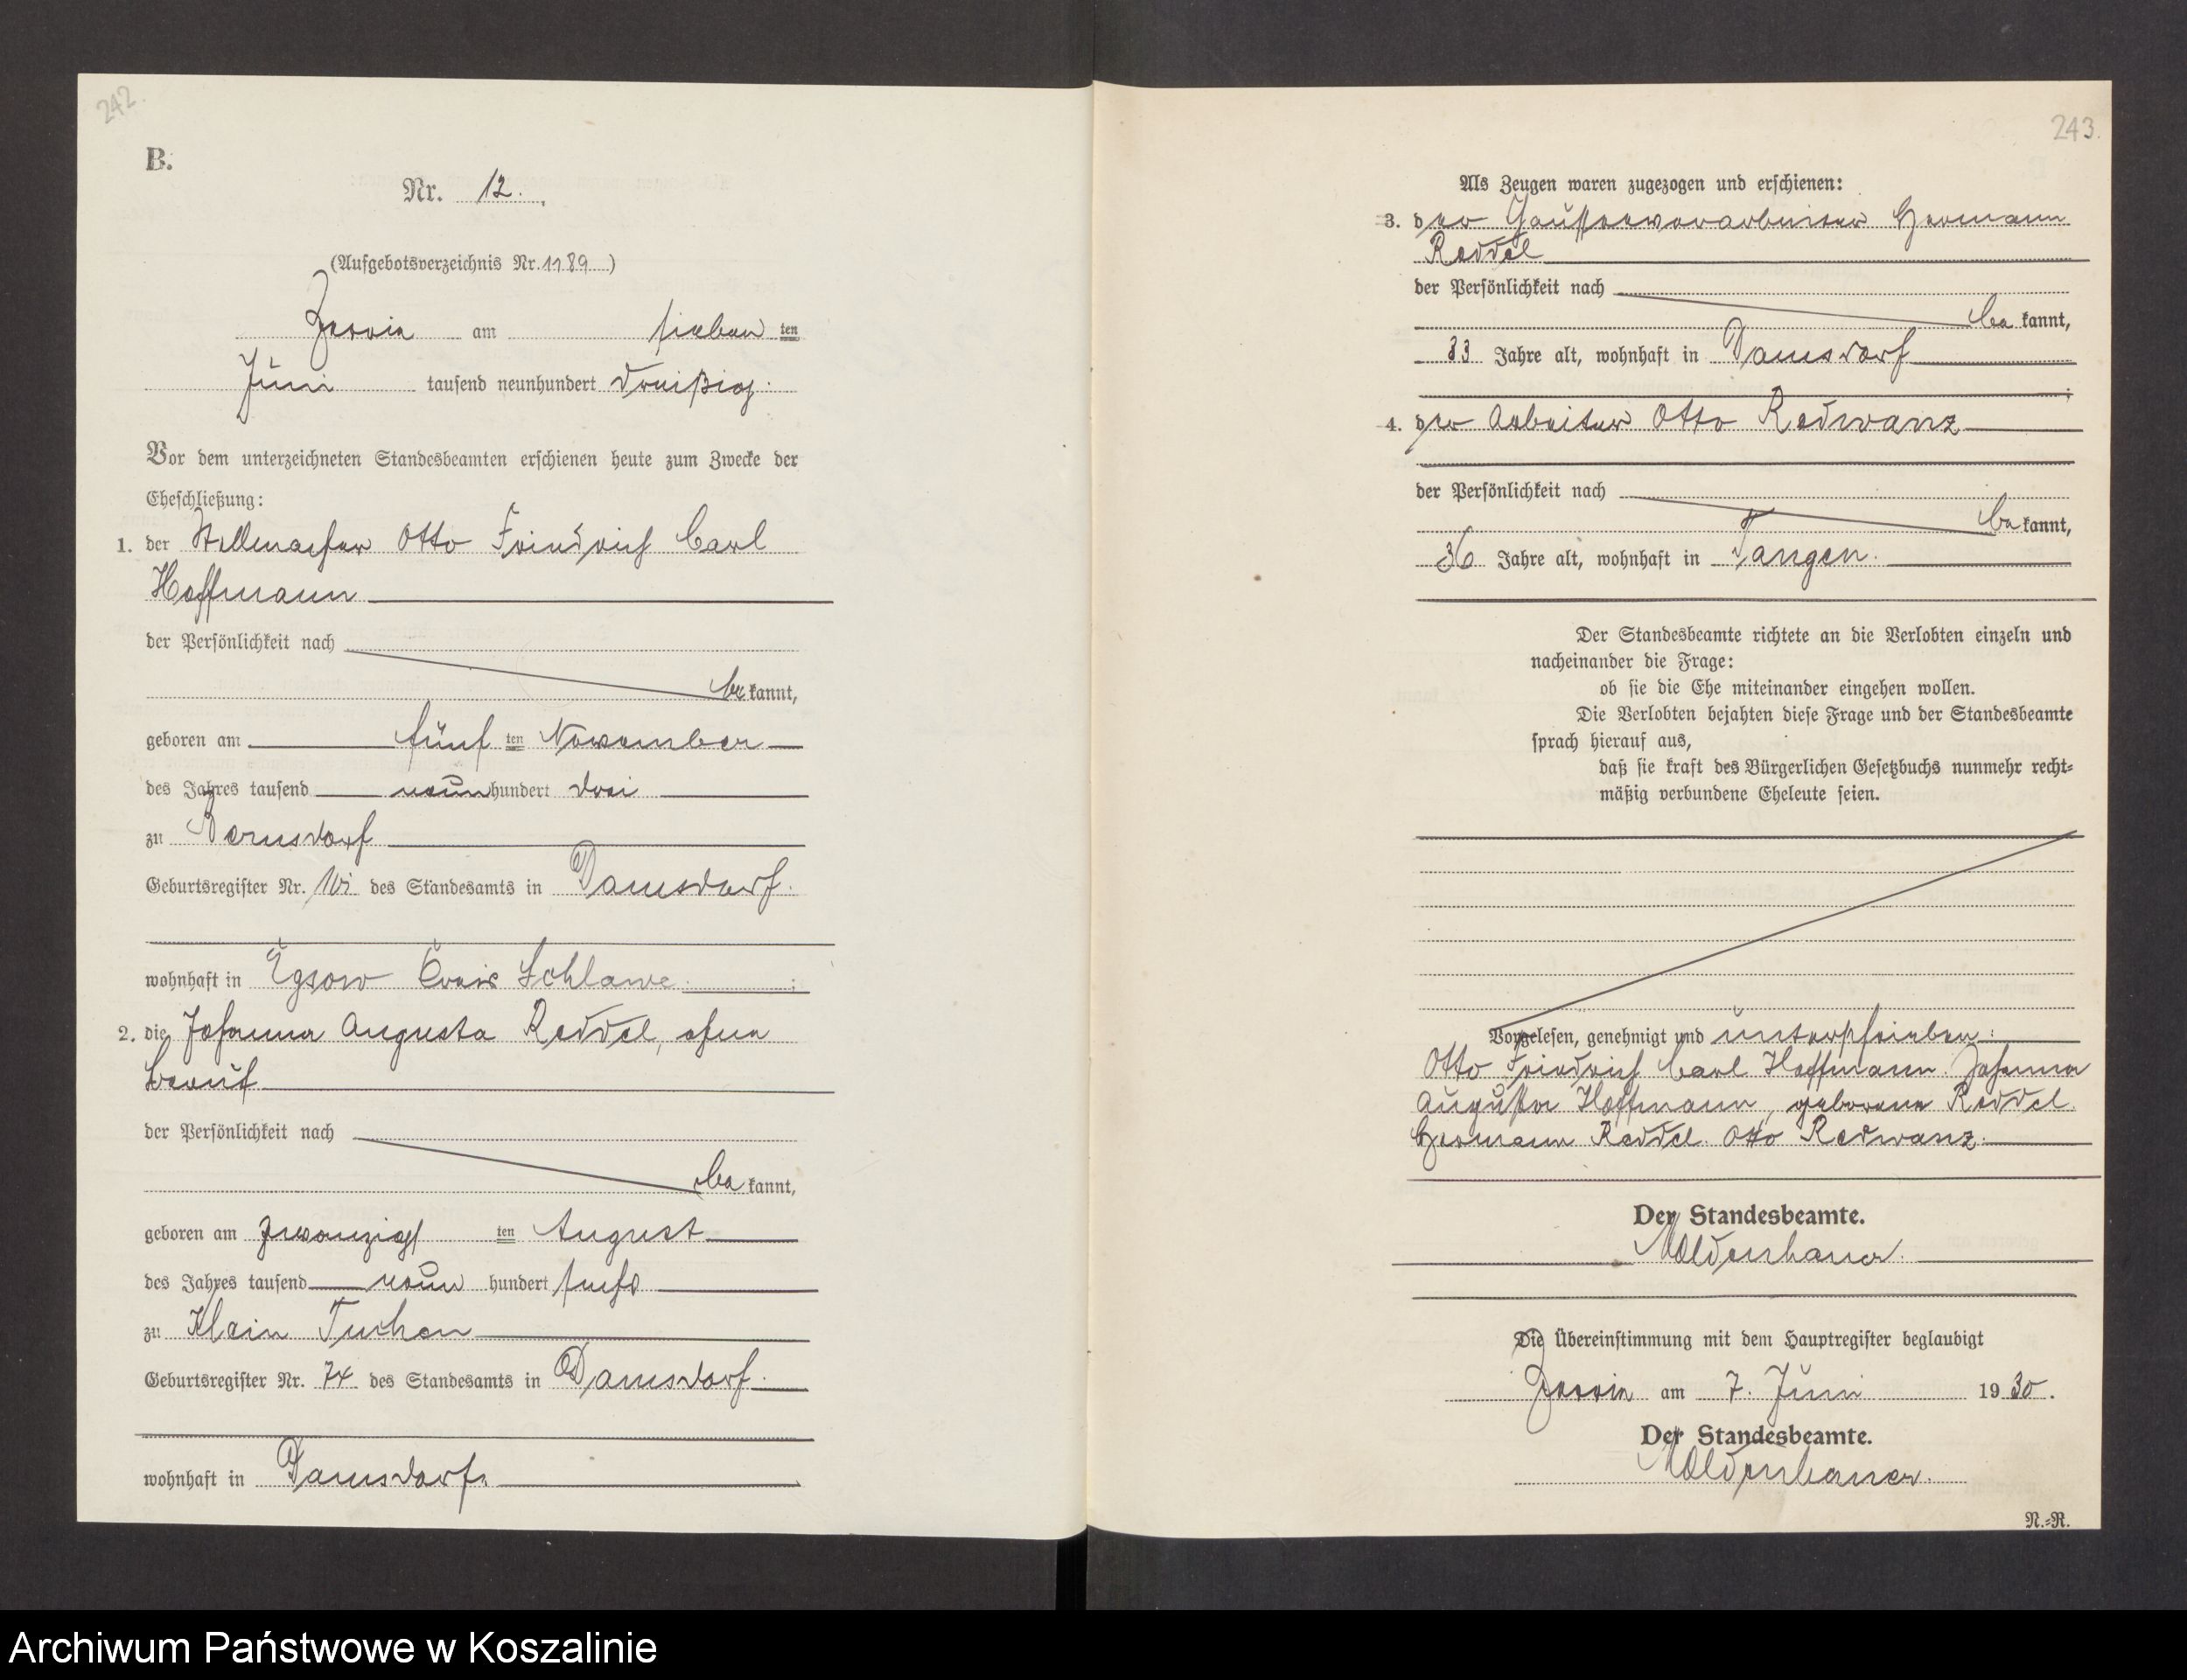 242.
B.
Nr. 12.
(Aufgebotsverzeichnis Nr. 1189)
Jassen am sieben ten
Juni tausend neunhundert dreißig.
Vor dem unterzeichneten Standesbeamten erschienen heute zum Zwecke der
Eheschließung:
1. der Stellmacher Otto Friedrich Carl
Hoffmann
der Persönlichkeit nach
be kannt,
geboren am fünf ten November
des Jahres tausend neun hundert drei
zu
Geburtsregister Nr. des Standesamts in Damsdorf.
wohnhaft in Egsow Kreis Schlawe. ;
2. die Johanna Augusta Reddel, ohne
Beruf
der Persönlichkeit nach
be kannt,
geboren am zwanzigs ten August
des Jahres tausend neun hundert sechs
zu Klein Tuchen
Geburtsregister Nr. 74 des Standesamts in Damsdorf.
wohnhaft in Damsdorf.
243.
Als Zeugen waren zugezogen und erschienen:
3. der Hermann
Reddel
der Persönlichkeit nach
be kannt,
33 Jahre alt, wohnhaft in Damsdorf
;
4. der Arbeiter Otto Redwanz
der Persönlichkeit nach
be kannt,
36 Jahre alt, wohnhaft in Tangen.
Der Standesbeamte richtete an die Verlobten einzeln und
nacheinander die Frage:
ob sie die Ehe miteinander eingehen wollen.
Die Verlobten bejahten diese Frage und der Standesbeamte
sprach hierauf aus,
daß sie kraft des Bürgerlichen Gesetzbuchs nunmehr recht-
mäßig verbundene Eheleute seien.
Vorgelesen, genehmigt und unterschrieben:
Otto Friedrich Carl Hoffmann. Johanna
Augusta Hoffmann, geborene Reddel.
Hermann Reddel. Otto Redwanz.
Der Standesbeamte.
Moldenhauer.
Die Übereinstimmung mit dem Hauptregister beglaubigt
Jassen am 7. Juni 1930.
Der Standesbeamte.
Moldenhauer.
N.-R.
Archiwum Państwowe w Koszalinie